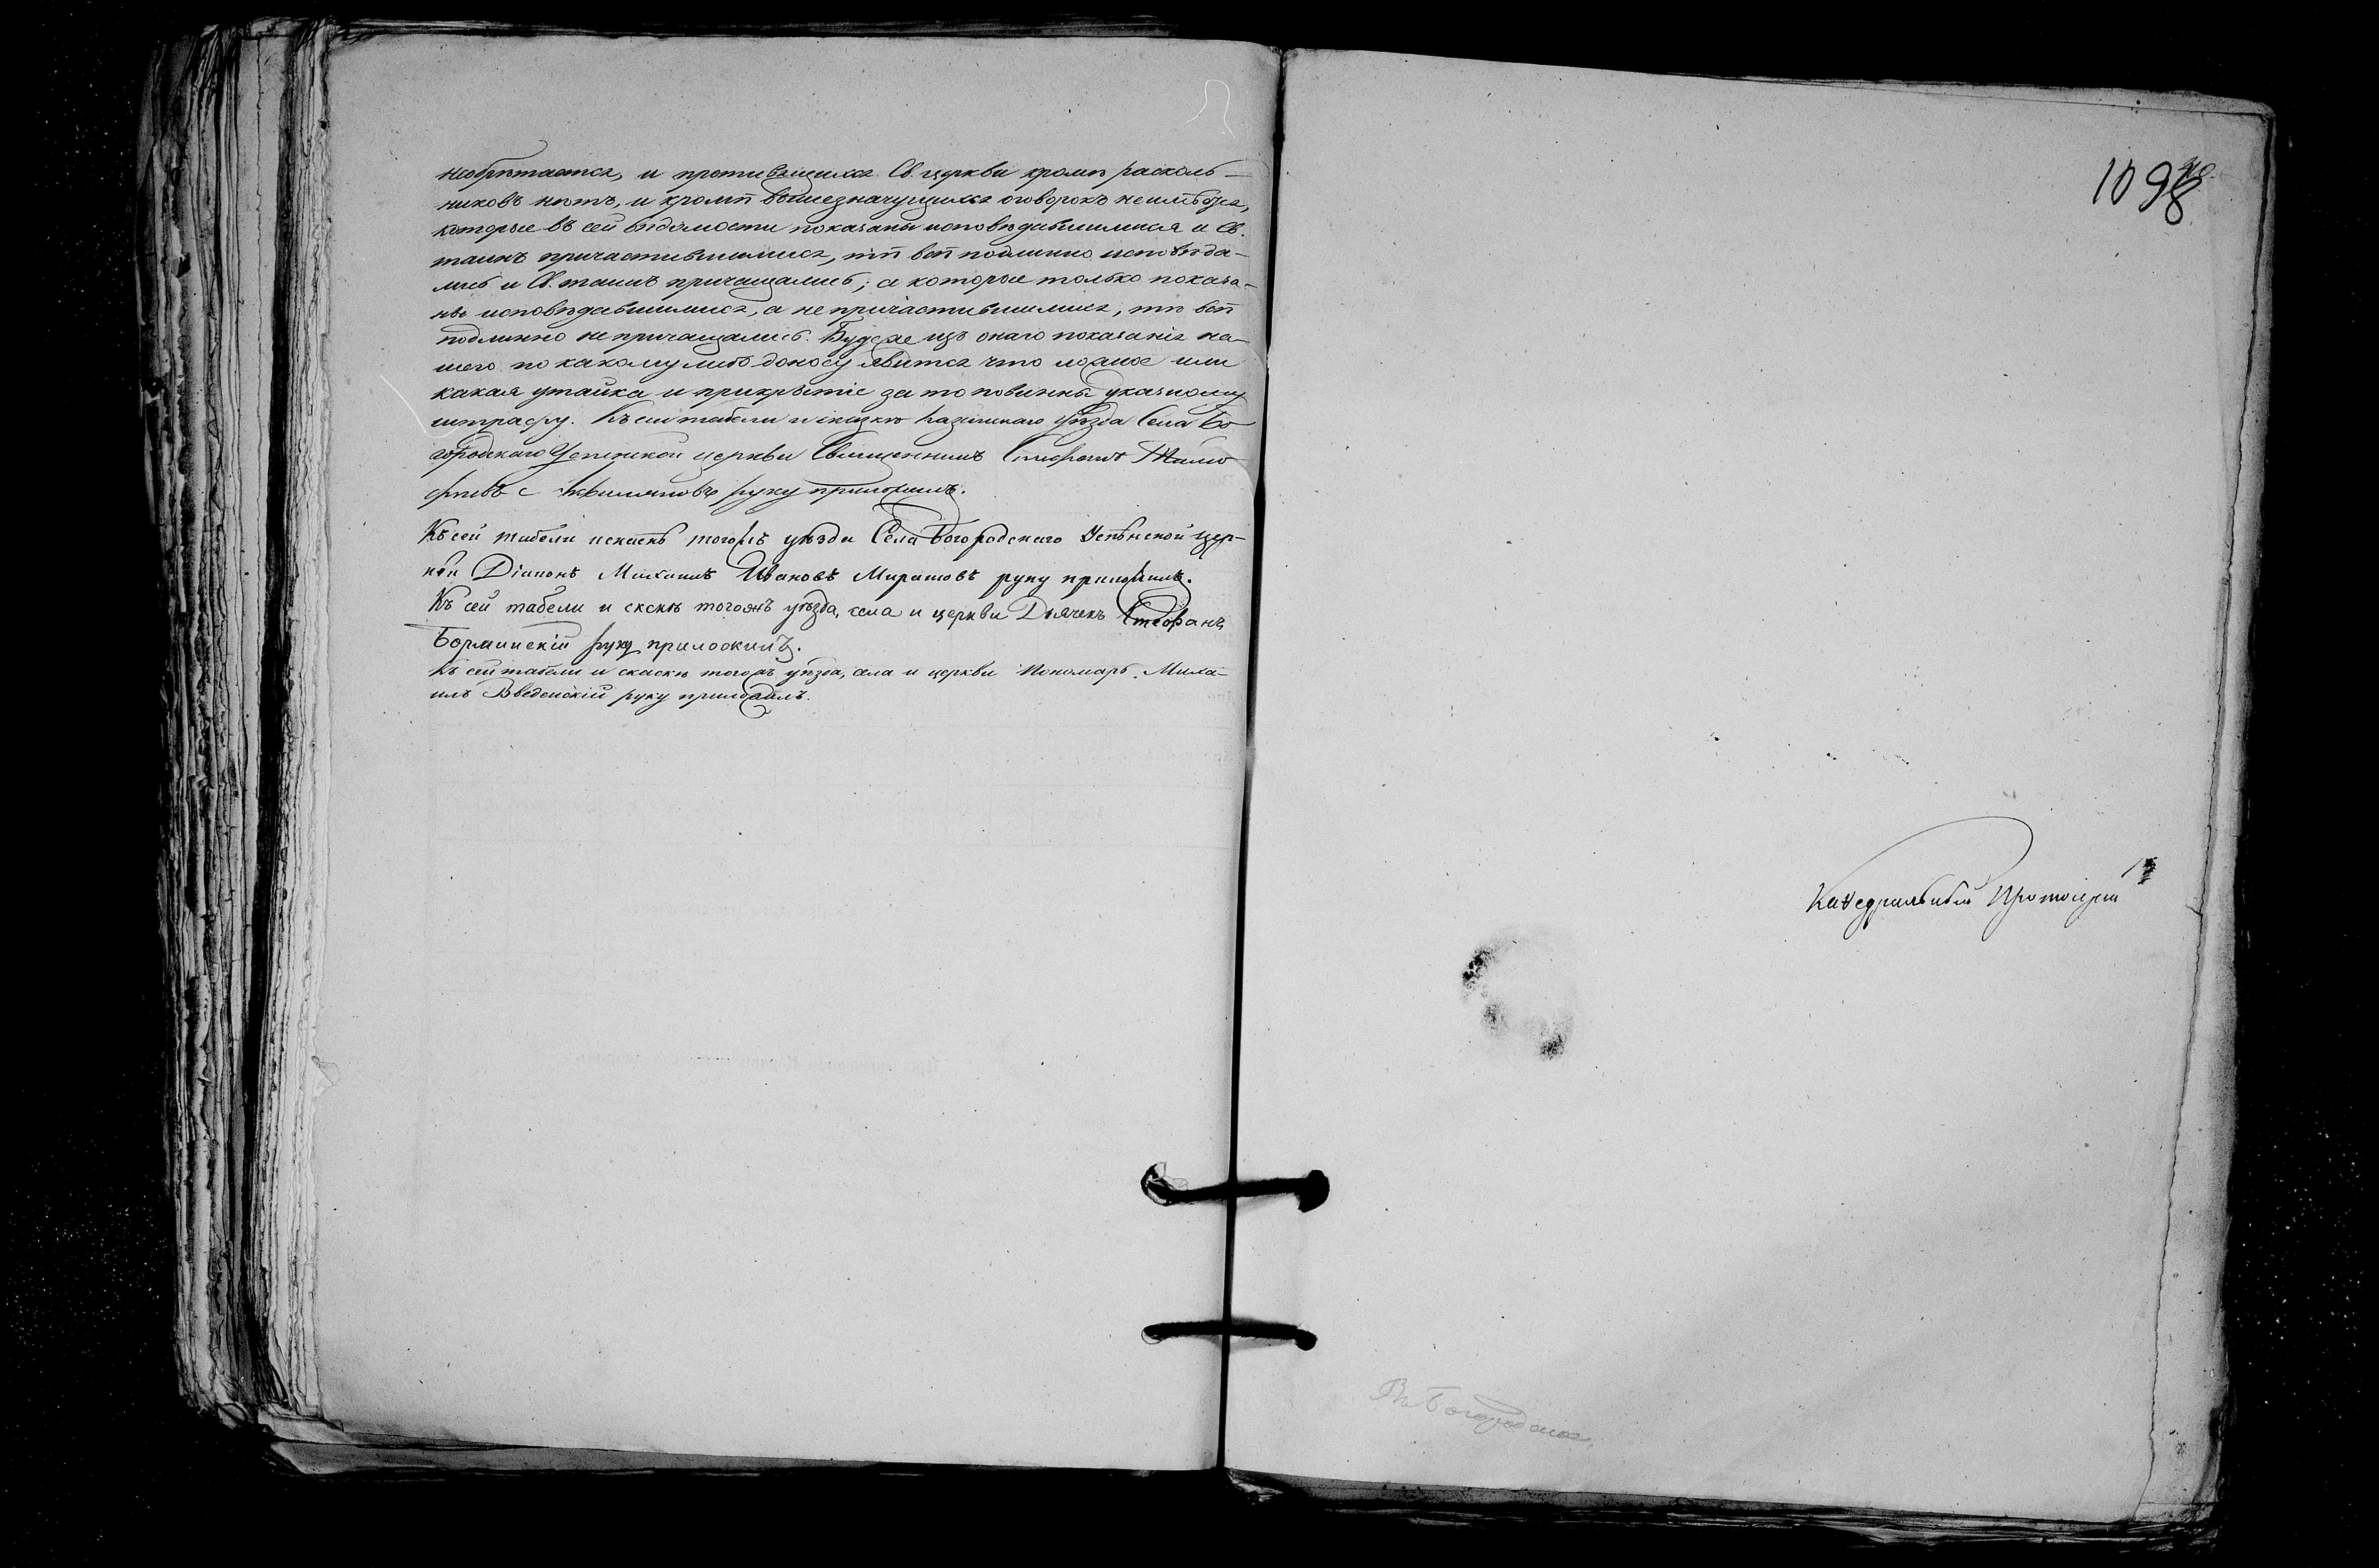 необрѣтается, и противящихся Св. церкви кромѣ расколь-
никовъ нѣтъ, и кромѣ вышезначущихся оговорокъ неимѣется,
которые въ сей вѣдомости показаны исповѣдавшимися и Св.
таинъ причастившимися, тѣ всѣ подлинно исповѣда-
лись и Св. таинъ причащались; а которые только показа-
ны исповѣдавшимися, а не причастившимися, тѣ всѣ
подлинно не причащались. Буде же изъ онаго показанія на-
шего по какому либо доносу явится что ложное или
какая утайка и прикрытіе за то повинны указному
штрафу. Къ сей табели и сказкѣ Казанскаго уѣзда Села Бо
городскаго Успенской церкви Священникъ Стефанъ
руку приложилъ.
Къ сей табели искаскѣ тогожъ уѣзда Села Богородскаго Успѣнской цер-
кви Діаконъ Михаилъ Ивановъ Миратовъ руку приложилъ.
Къ сей табели и скскѣ тогожъ уѣзда, села и церкви Дьячекъ Стефанъ
Борминскій руку приложилъ.
Къ сей табели и скаскѣ тогожъ уѣзда, села и церкви Пономарь Миха-
илъ Введенскій руку приложилъ.
1098
Каѳедральный Протоіерей
Богородское